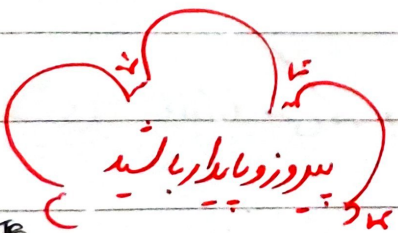 پیروز و پایدار باشید